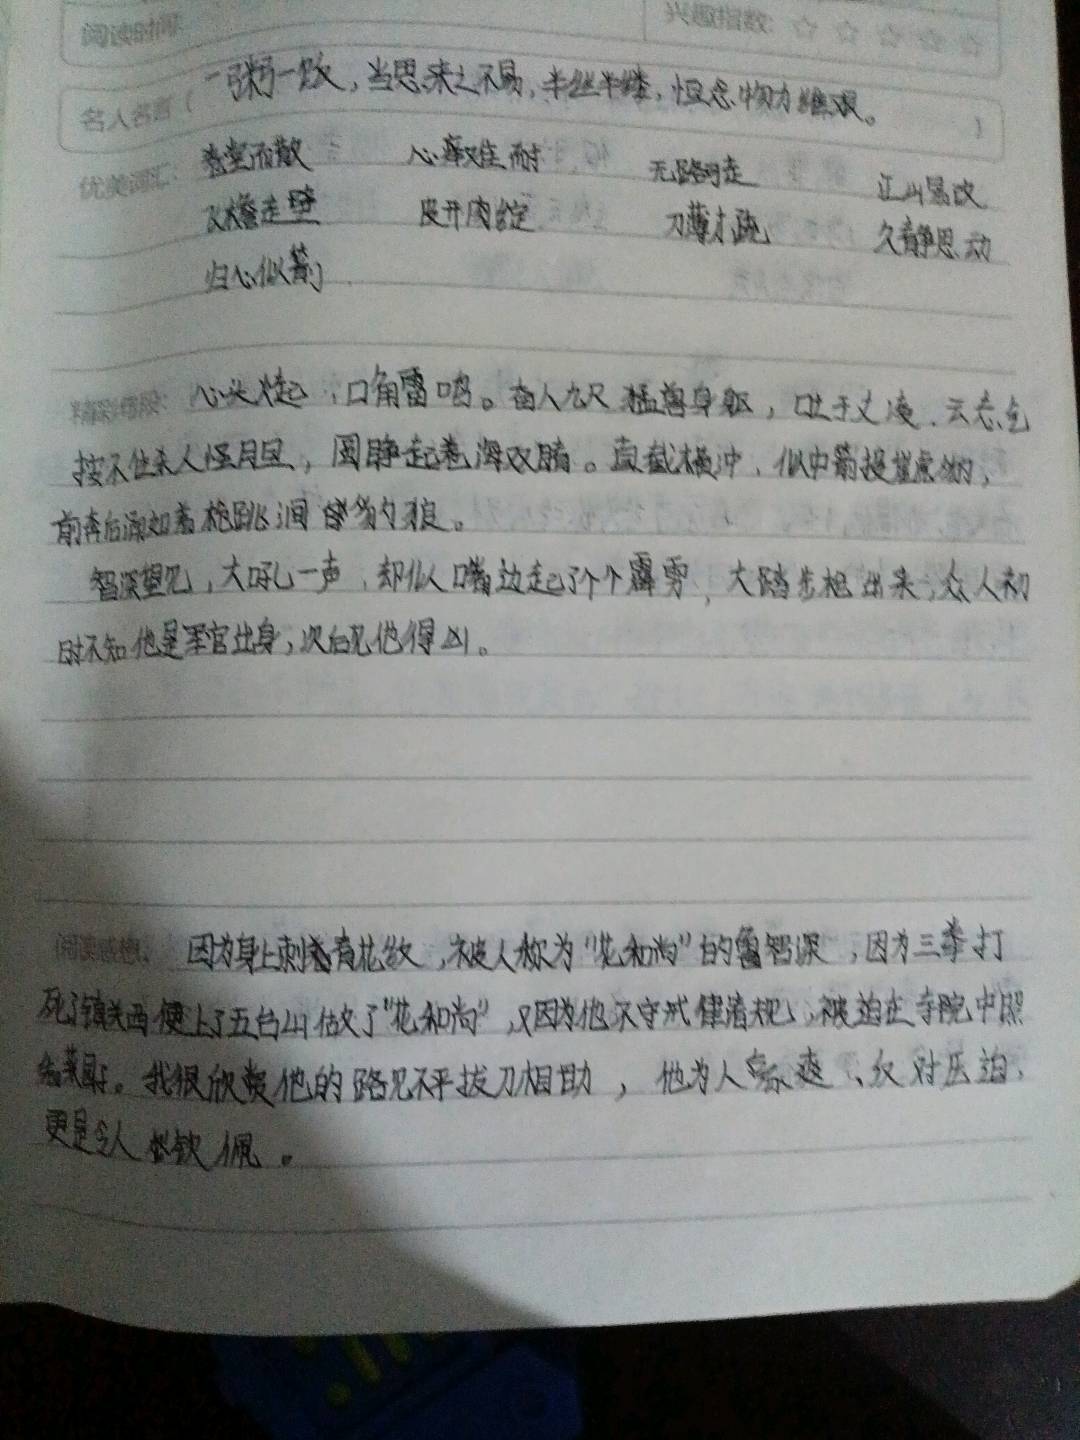 阅读时间: 兴趣指数: ☆ ☆ ☆ ☆ ☆
名人名言（一粥一饭，当思来之不易，半丝半缕，恒念物力维艰。）
优美词汇: 卷堂而散 心痒难耐 无路可走 江山易改
飞檐走壁 皮开肉绽 久静思动
归心似箭
精彩片段: 心头火起，口角雷鸣。奋八九尺猛兽身躯，吐三千丈凌云志气
按不住杀人怪胆，圆睁起卷海双睛。直截横冲，似中箭投崖虎豹，
前奔后涌如着枪跳涧豺狼。
智深望见，大吼一声，却似嘴边起了个霹雳，大踏步抢出来，众人初
时不知他是军官出身，次后见他得凶。
阅读感想: 因为身上刺着有花纹，被人称为“花和尚”的鲁智深，因为三拳打
死了镇关西便上了五台山做了“花和尚”，又因为他不守戒律清规，被迫在寺院中照
看菜园。我很欣赏他的路见不平拔刀相助，他为人豪爽、反对压迫，
更是令人钦佩。